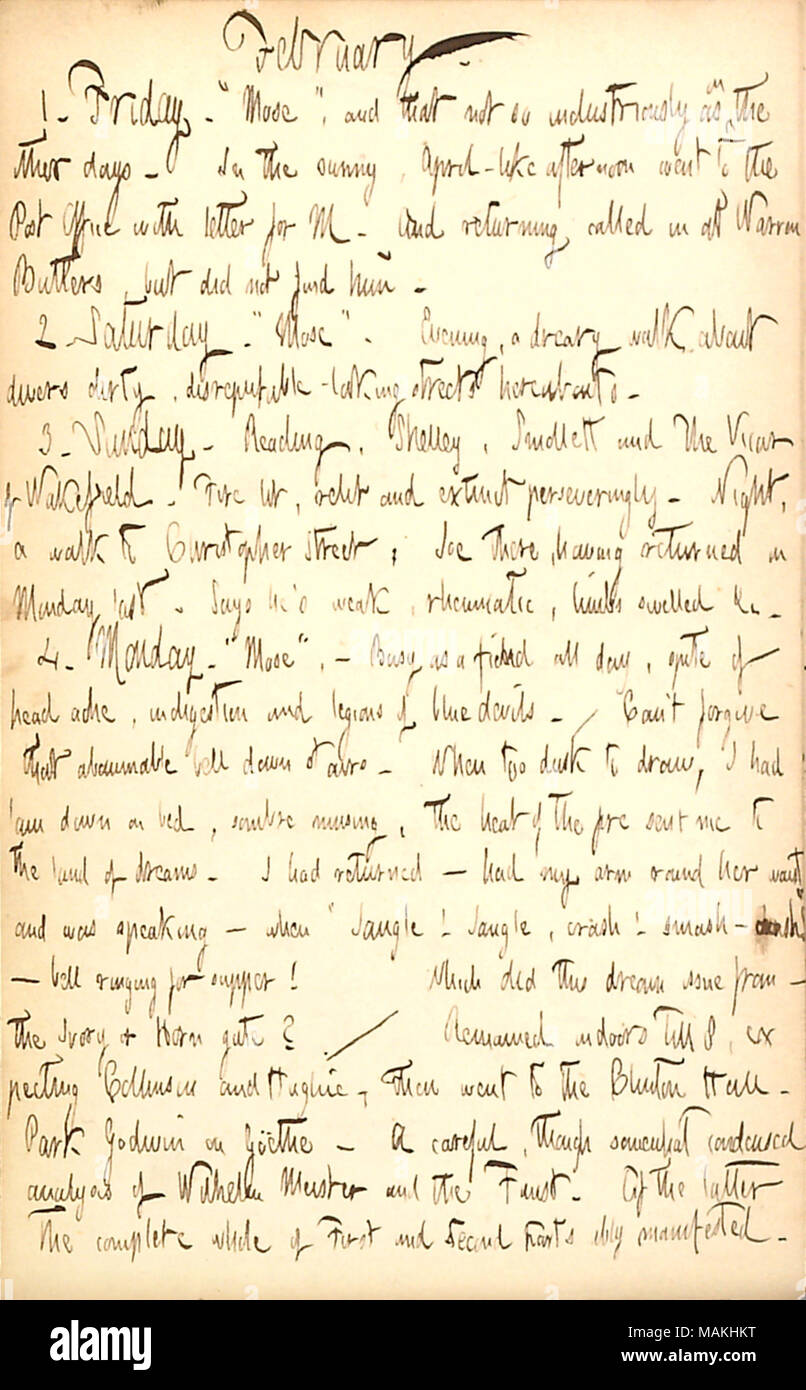 February.
1. Friday. "Mose", and that not so industriously as on the
other days. In the sunny, April-like afternoon went to the
Post Office with letter for M. And returning called in at Warren
Butlers, but did not find him.
2. Saturday. "Mose". Evening, a dreary walk about
divers dirty, disreputable-looking streets hereabouts.
3. Sunday. Reading, Shelley, Smollett and The Vicar
of Wakefield. Fire lit, relit and extinct perseveringly. Night,
a walk to Christopher Street; Joe there, having returned on
Monday last. Says he's weak, rheumatic, limbs swelled &c.
4. Monday. "Mose". — Busy as a fiend all day, spite of
head ache, indigestion and legions of blue devils. / Can't forgive
that abominable bell down stairs. When too dusk to draw, I had
lain down on bed, sombre musing, the heat of the fire sent me to
the land of dreams. I had returned — had my arm round her waist
and was speaking — when "Jangle! Jangle, crash! smash —
— bell ringing for supper! Which did this dream issue from —
the Ivory or Horn gate? / Remained indoors till 8, ex
pecting Collinson and Hughie, then went to the Clinton Hall.
Park Godwin on Göethe — A careful, though somewhat condensed
analysis of Wilhelm Meister and the Faust. Of the latter
the complete whole of First and Second Parts ably manifested.
alamy
Image ID: MAKHKT
www.alamy.com